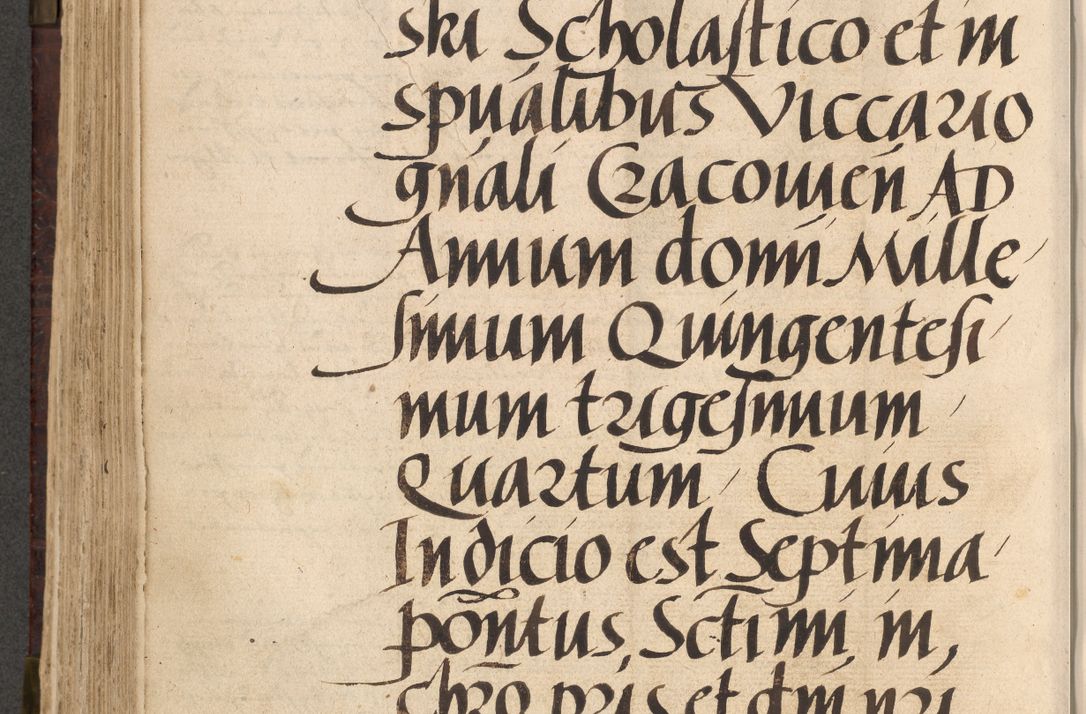 ski Scholastico et in
spualibus Viccario
gnali Czacowien AD
Annum domi Mille/
simum Quingentesi/
mum trigesimum /
Quartum / Cuius
Indicio est Septima/
pontus, Sctimi in,
chro pris et dni nri